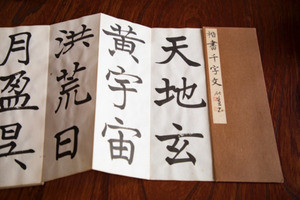 楷書千字文
天地玄
黃宇宙
洪荒日
月盈昃